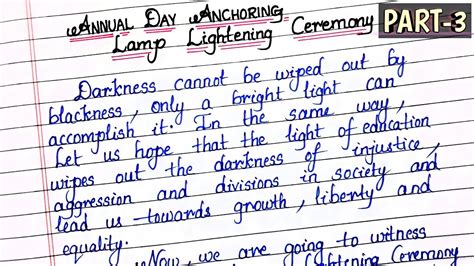 Annual Day Anchoring
Lamp Lightening Ceremony
PART-3
Darkness cannot be wiped out by
blackness, only a bright light can
accomplish it. In the same way,
Let us hope that the light of education
wipes out the darkness of injustice,
aggression and divisions in society and
lead us towards growth, liberty and
equality.
Now, we are going to witness
Lightening Ceremony